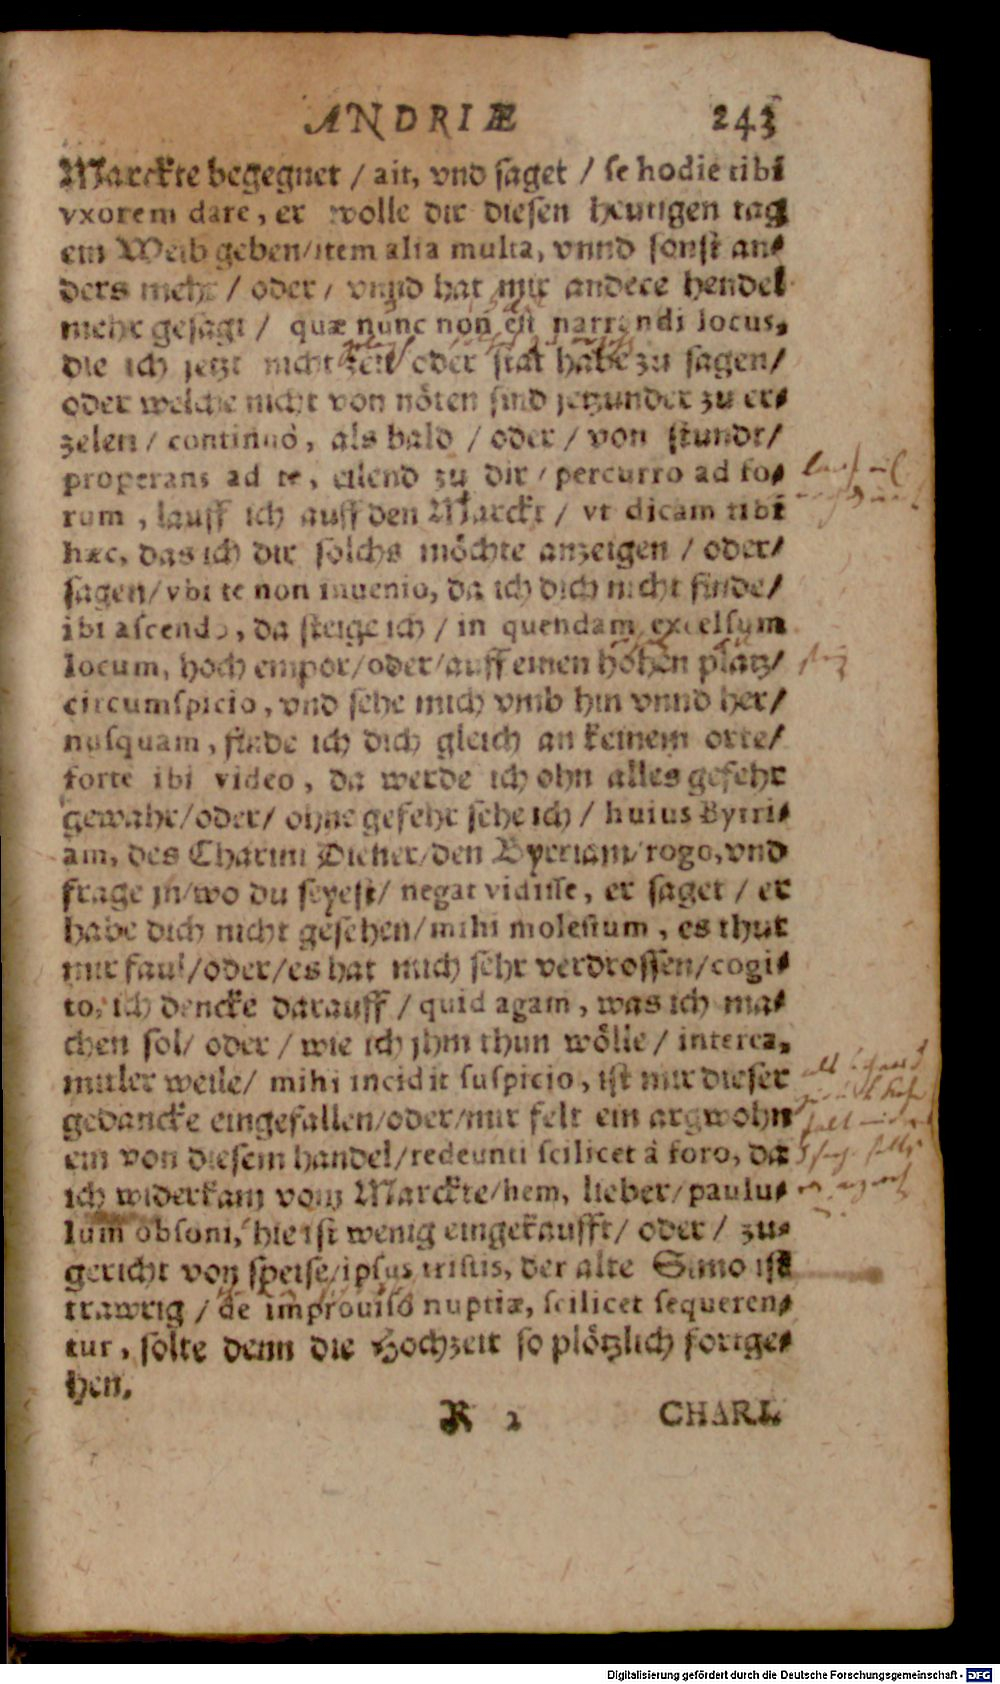 ANDRIÆ 243
Marckte begegnet / ait, vnd saget / se hodie tibi
vxorem dare, er wolle dir diesen heutigen tag
ein Weib geben/item alia multa, vnnd sonst an⸗
ders mehr / oder / vnnd hat mir andere hendel
mehr gesagt / quæ nunc non est narrandi locus,
die ich jetzt nicht zeit oder stat habe zu sagen/
oder welche nicht von nöten sind jetzunder zu er⸗
zelen / continuò, als bald / oder / von stundt/
properans ad te, eilend zu dir / percurro ad fo⸗
rum, lauff ich auff den Marckt / vt dicam tibi
hæc, das ich dir solchs möchte anzeigen / oder/
sagen/ vbi te non inuenio, da ich dich nicht finde/
ibi ascendo, da steige ich / in quendam excelsum
locum, hoch empor/oder/auff einen hohen platz/
circumspicio, vnd sehe mich vmb hin vnnd her/
nusquam, finde ich dich gleich an keinem orte/
forte ibi video, da werde ich ohn alles gefehr
gewahr/oder/ ohne gefehr sehe ich / huius Byrri⸗
am, des Charini Diener/den Byrriam/ rogo, vnd
frage jn/wo du seyest/ negat vidisse, er saget / er
habe dich nicht gesehen/mihi molestum, es thut
mir faul/oder/es hat mich sehr verdrossen/cogi⸗
to, ich dencke darauff / quid agam, was ich ma⸗
chen sol/ oder / wie ich jhm thun wölle/ interea,
mitler weile/ mihi incidit suspicio, ist mir dieser
gedancke eingefallen/oder/mir felt ein argwohn
ein von diesem handel/redeunti scilicet à foro, da
ich widerkam vom Marckte/hem, lieber/paulu⸗
lum obsoni, hie ist wenig eingekaufft/ oder / zu⸗
gericht von speise/ipsus tristis, der alte Simo ist
trawrig / de improuiso nuptiæ, scilicet sequeren⸗
tur, solte denn die Hochzeit so plötzlich fortge⸗
hen.
R 2 CHARI.
Digitalisierung gefördert durch die Deutsche Forschungsgemeinschaft - DFG